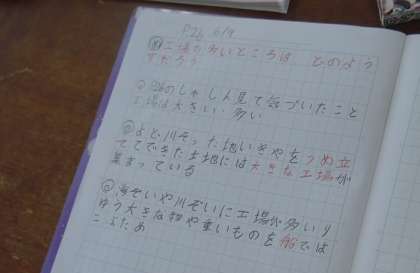 P26 6/9
問 工場が多いところは、どのよう
すだろう
のしゃしん見て気づいたこと
工場は大きい・多い
よど川そった地いきやをうめ立
ててできた土地には大きな工場が
集まっている
海ぞいや川ぞいに工場が多いり
ゆう大きな物や重いものを船では
こぶため